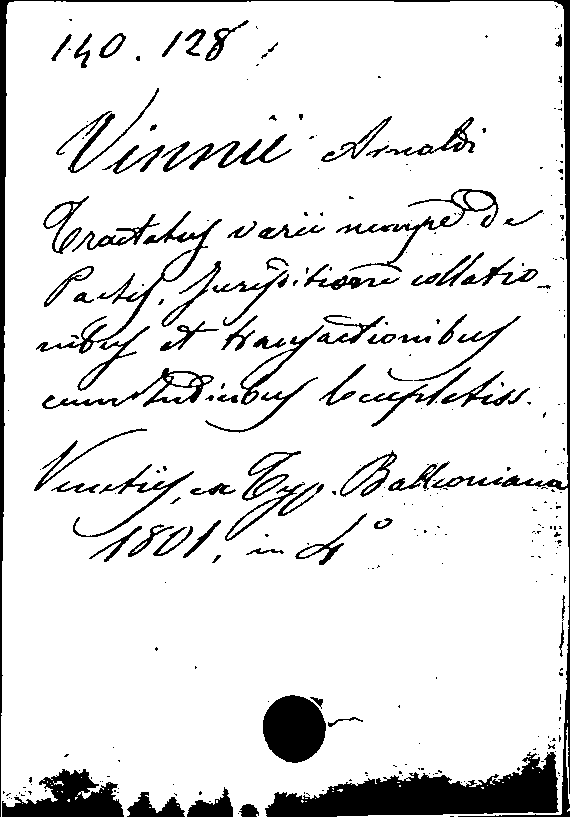 140.128
Vinnii Arnoldi
Tractatus varii nempe de
Pactis, Jurisditione collatio-
nibus et transactionibus
cum Indicibus locupletiss.
Venetiis, ex Typ. Balleoniana
1801, in 4°